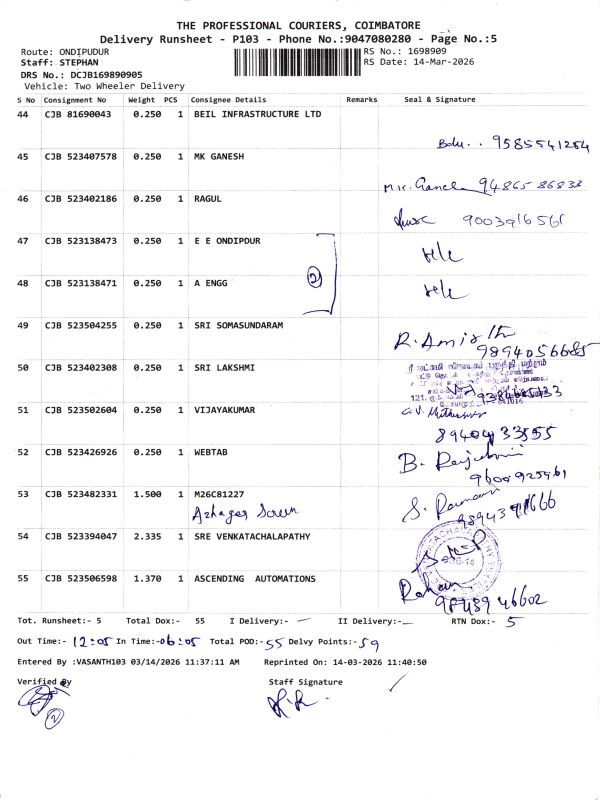 THE PROFESSIONAL COURIERS, COIMBATORE
Delivery Runsheet - P103 - Phone No.:9047080280 - Page No.:5
Route: ONDIPUDUR
RS No.: 1698909
Staff: STEPHAN
RS Date: 14-Mar-2026
DRS No.: DCJB169890905
Vehicle: Two Wheeler Delivery
S No Consignment No Weight PCS Consignee Details Remarks Seal & Signature
44 CJB 81690043 0.250 1 BEIL INFRASTRUCTURE LTD
9585541254
45 CJB 523407578 0.250 1 MK GANESH
94865 86838
46 CJB 523402186 0.250 1 RAGUL
9003916561
47 CJB 523138473 0.250 1 E E ONDIPDUR
H/c
2
48 CJB 523138471 0.250 1 A ENGG
H/c
49 CJB 523504255 0.250 1 SRI SOMASUNDARAM
R. Amirth
9894056685
50 CJB 523402308 0.250 1 SRI LAKSHMI
51 CJB 523502604 0.250 1 VIJAYAKUMAR
52 CJB 523426926 0.250 1 WEBTAB
B.
9600925961
53 CJB 523482331 1.500 1 M26C81227
Azhager
S.
54 CJB 523394047 2.335 1 SRE VENKATACHALAPATHY
55 CJB 523506598 1.370 1 ASCENDING AUTOMATIONS
Rohan
Tot. Runsheet:- 5 Total Dox:- 55 I Delivery:- — II Delivery:- — RTN Dox:- 5
Out Time:- 12:05 In Time:- 06:05 Total POD:- 55 Delvy Points:- 59
Entered By :VASANTH103 03/14/2026 11:37:11 AM Reprinted On: 14-03-2026 11:40:50
Verified By Staff Signature
2